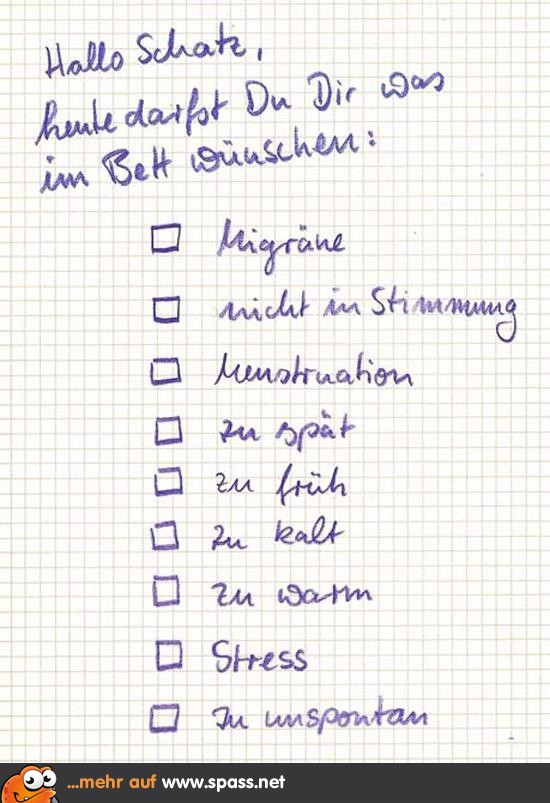 Hallo Schatz,
heute darfst Du Dir was
im Bett wünschen:
Migräne
nicht in Stimmung
Menstruation
zu spät
zu früh
zu kalt
zu warm
Stress
Zu unspontan
...mehr auf www.spass.net